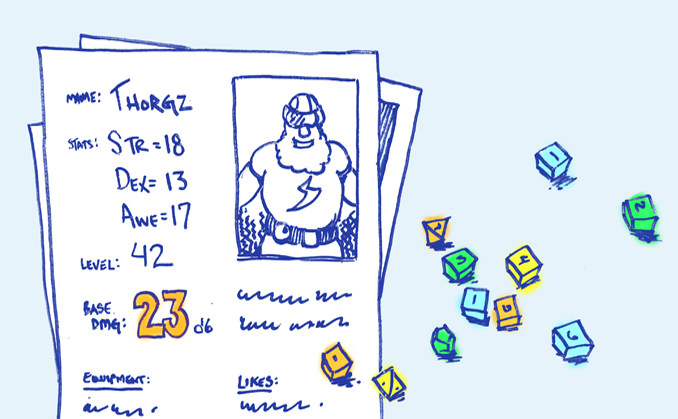 NAME: THORGZ
STATS: STR=18
DEX=13
AWE=17
LEVEL: 42
BASE DMG: 23 d6
EQUIPMENT:
LIKES:
1
2
3
4
1
6
1